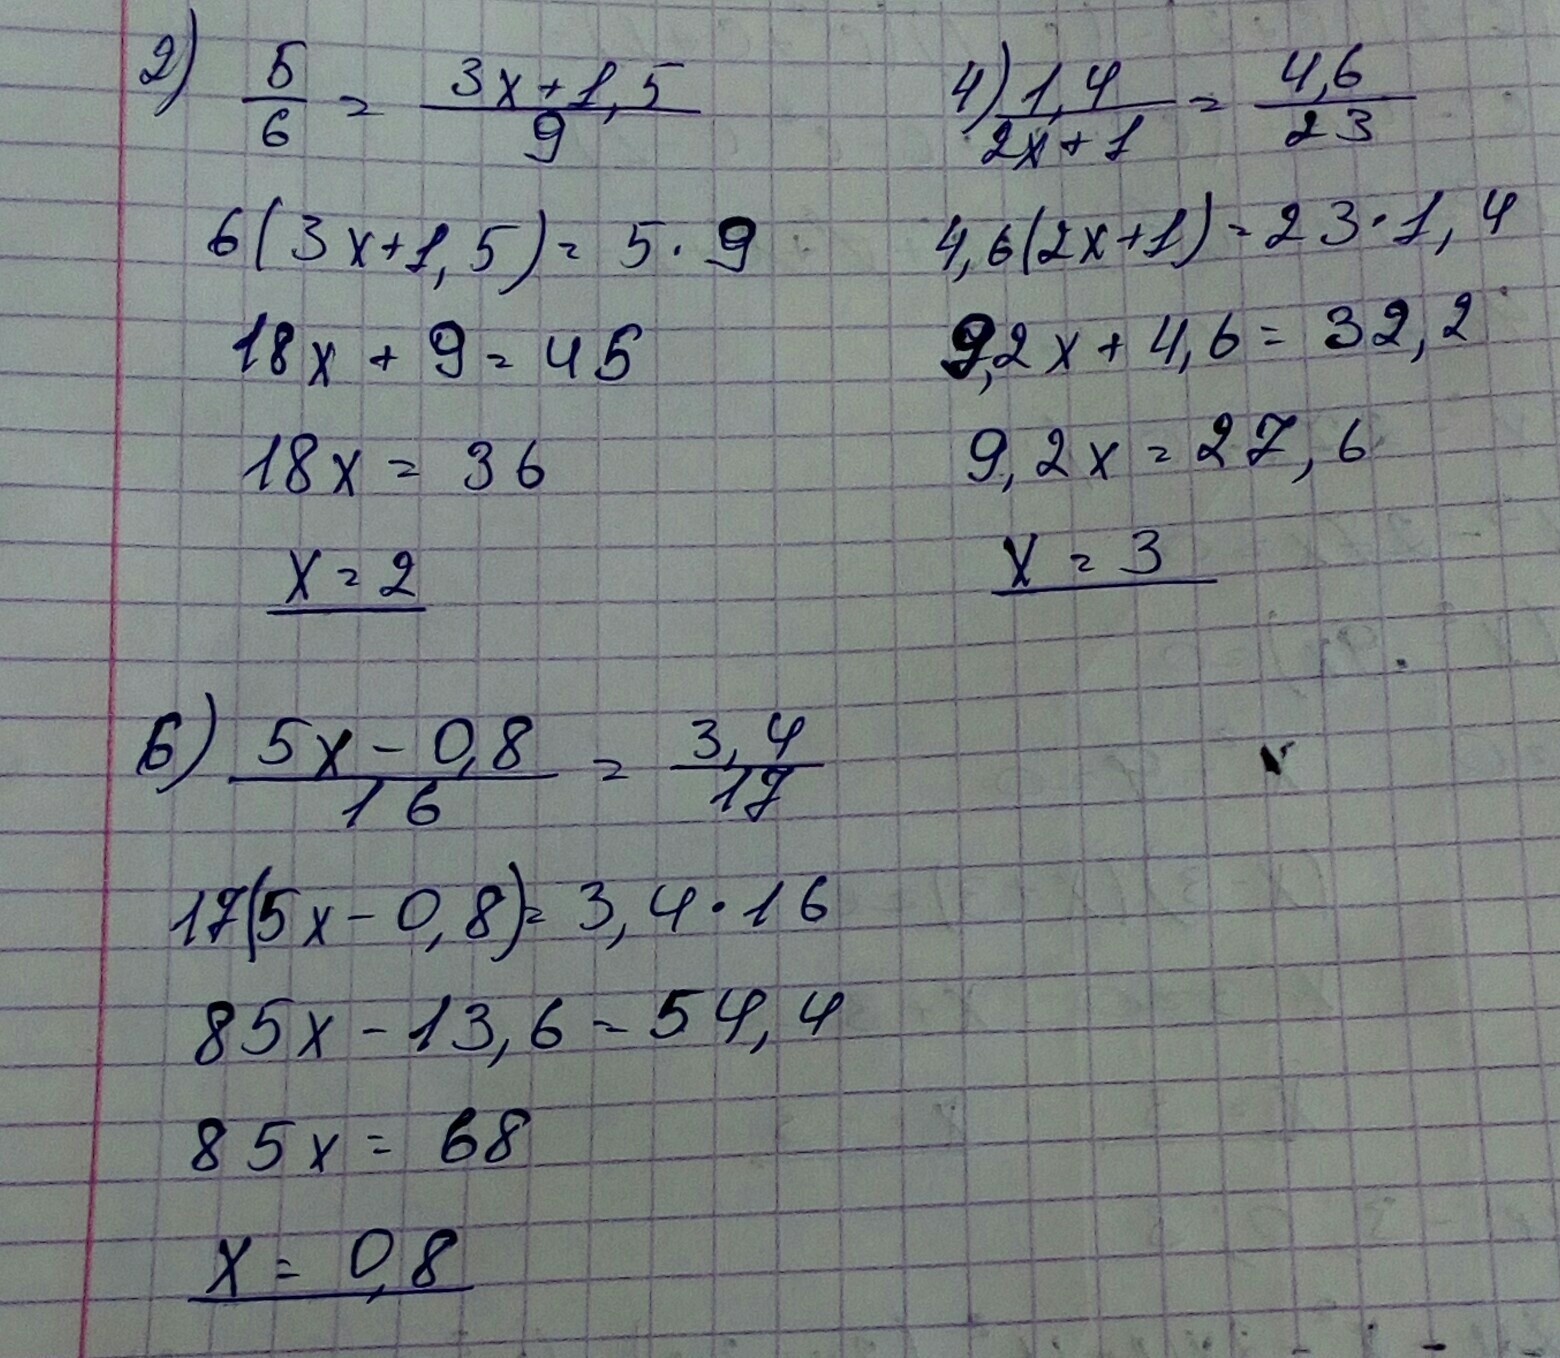 2) 5/6 = (3x+1,5)/9
6(3x+1,5) = 5·9
18x + 9 = 45
18x = 36
x = 2
4) 1,4/(2x+1) = 4,6/23
4,6(2x+1) = 23·1,4
9,2x + 4,6 = 32,2
9,2x = 27,6
x = 3
6) (5x - 0,8)/16 = 3,4/17
17(5x - 0,8) = 3,4·16
85x - 13,6 = 54,4
85x = 68
x = 0,8